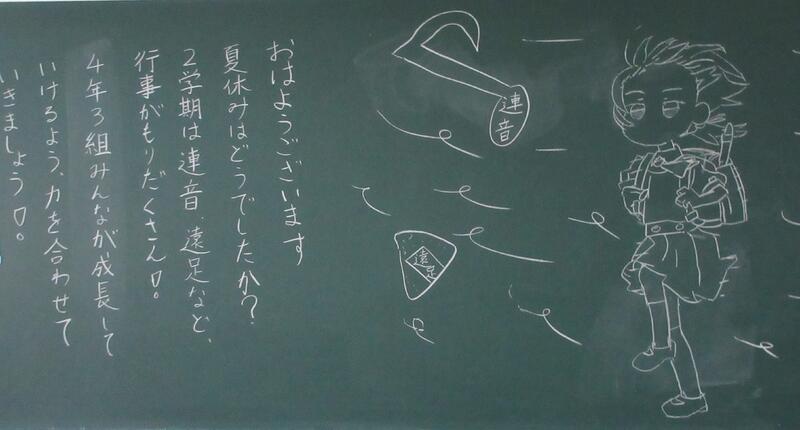 おはようございます
夏休みはどうでしたか？
2学期は連音、遠足など、
行事がもりだくさん！。
4年3組みんなが成長して
いけるよう、力を合わせて
いきましょう！。
連音
遠足